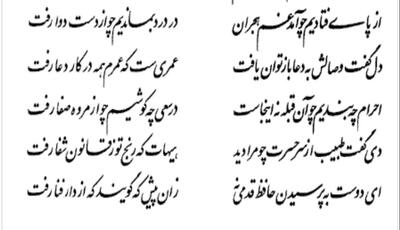 از پای فتادیم چو آمد غم هجران در درد بماندیم چو از دست دوا رفت
دل گفت وصالش به دعا باز توان یافت عمری ست که عمرم همه در کار دعا رفت
احرام چه بندیم چو آن قبله نه اینجاست در سعی چه کوشیم چو از مروه صفا رفت
دی گفت طبیب از سر حسرت چو مرا دید هیهات که رنج تو ز قانون شفا رفت
ای دوست به پرسیدن حافظ قدمی نه زان پیش که گویند که از دار فنا رفت